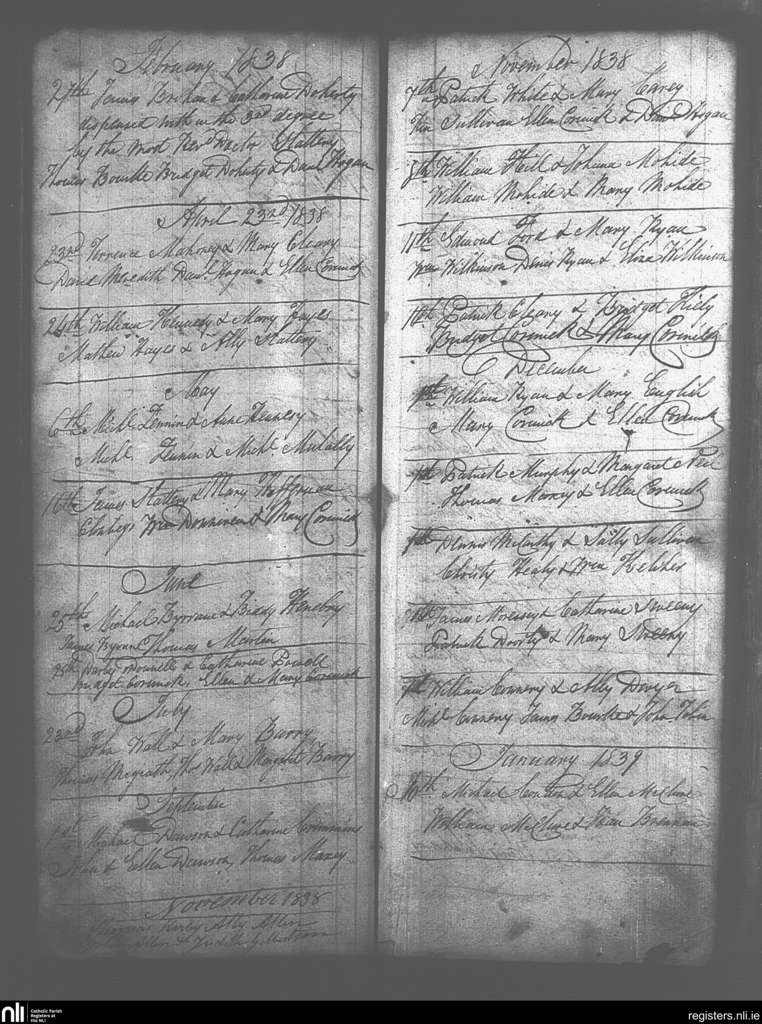 February 1838
27th James Brohan & Catharine Doherty
dispensed with in the 3rd degree
by the most Revd Doctor Slattery
Thomas Bourke Bridget Doherty & Danl Hogan
April 23rd 1838
23rd Terrence Mahoney & Mary Cleary
David Meredith Danl Hogan & Ellen Cormick
24th William Kennedy & Mary Hayes
Mathew Hayes & Ally Slattery
May
6th Michl Lennon & Anne
Michl Lennon & Michl Mulally
16th James Slattery & Mary Heffernan
Wm Donnivan & Mary Cormick
June
25th Michael Byrrane & Biddy Henebry
James Byrrane Thomas Martin
28th Darby Donnell & Catharine Powell
Bridget Cormick, Ellen & Mary Cormick
July
22nd John Wall & Mary Barry
Thomas Megrath, Thos Wall & Margaret Barry
September
Michael Dawson & Catharine Crimmins
John & Ellen Dawson, Thomas Maney
November 1838
Thomas Kirby Ally
November 1838
7th Patrick White & Mary Carey
Tim Sullivan Ellen Cormick & Danl Hogan
8th William Heil & Johana Mohide
William Mohide & Mary Mohide
11th Edmond Ford & Mary Ryan
Wm Wilkinson Denis Ryan & Eliza Wilkinson
16th Patrick Cleary & Bridget Kiely
Bridget Cormick & Mary Cormick
December
William Ryan & Mary English
Mary Cormick & Ellen Cormick
Patrick Murphy & Margaret Neil
Thomas Maney & Ellen Cormick
Dennis McCarthy & Sally Sullivan
Christy Healy & Wm Keleher
James & Catharine Sweeny
Patrick Doorty & Mary Sweeny
William Connery & Ally Dwyer
Michl Connery James Bourke & John Tobin
January 1839
16th Michael & Ellen McClune
William McClune & Brennan
nli Catholic Parish
Registers at
the NLI
registers.nli.ie